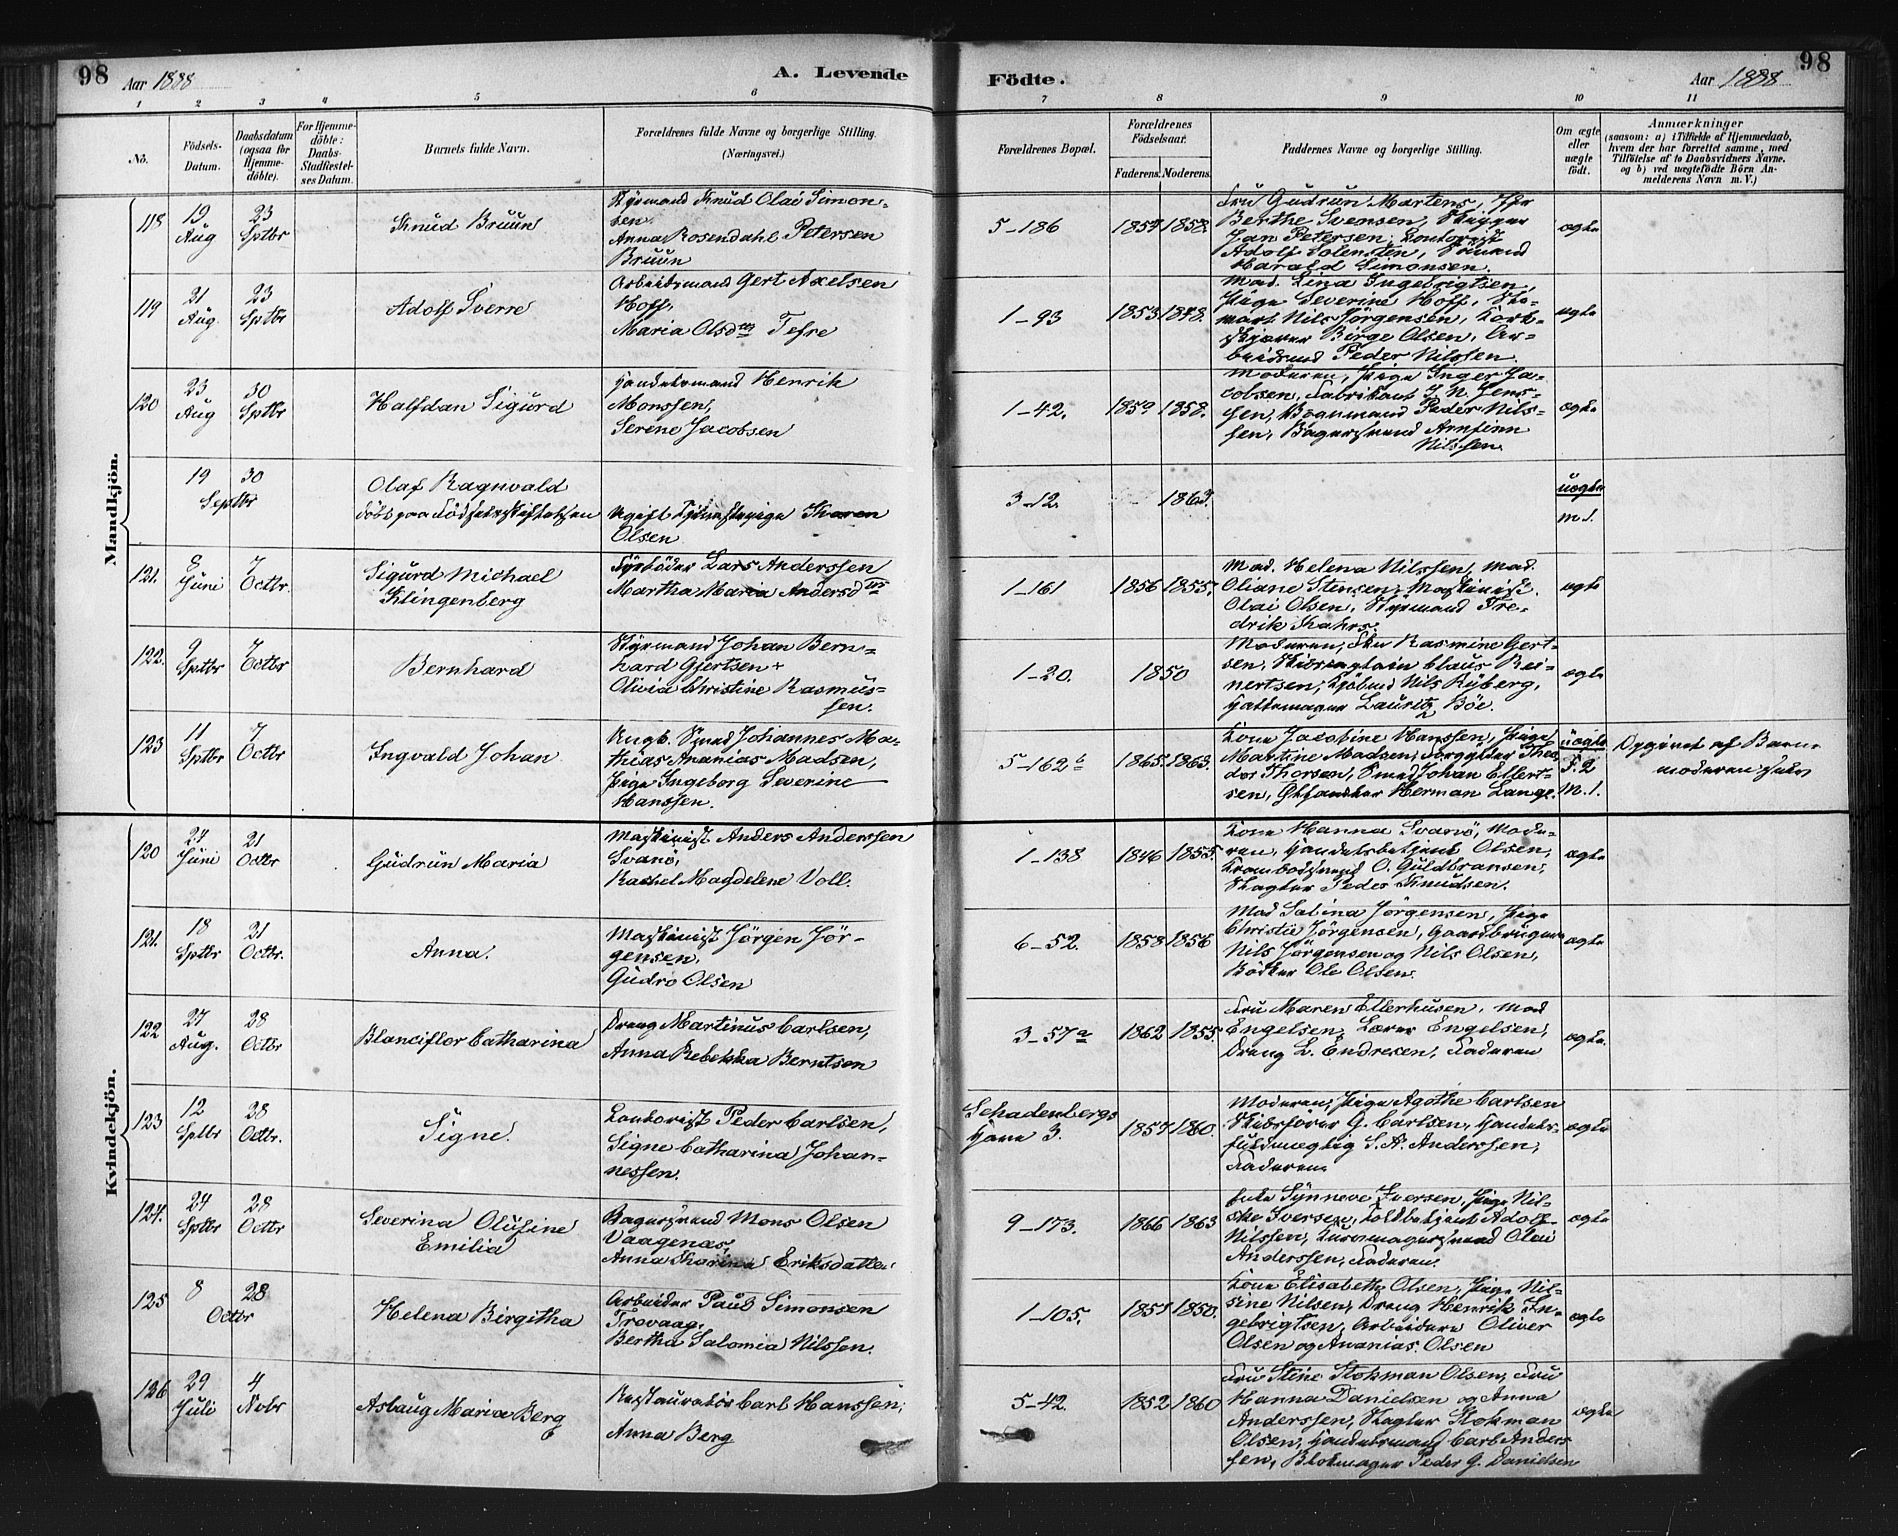 98 Aar 1888 A. Levende
Födte. Aar 1888 98
1 2 3 4 5 6
7 8 9 10 11
No.
Födsels-Datum.
Daabsdatum (ogsaa för Hjemme-döbte).
For Hjemme-döbte: Daabs-Stadfæstel-ses Datum.
Barnets fulde Navn.
Forældrenes fulde Navne og borgerlige Stilling.
(Næringsvei.)
Forældrenes Bopæl.
Forældrenes Födselsaar.
Faderens. Moderens.
Faddernes Navne og borgerlige Stilling.
Om ægte eller uægte födt.
Anmærkninger
(saasom: a) i Tilfælde af Hjemmedaab, hvem der har forrettet samme, med Tilföielse af to Daabsvidners Navne. og b) ved uægtefödte Börn An-melderens Navn m. V.)
Mandkjön.
118 19 Aug 23 Sptbr Knud Bruun
Styrmand Knud Olai Simon-
sen
Anna Rosendahl Petersen
Bruun
5-186 1857 1858.
Fru Gudrun Martens,
Berthe Svensen,
Jan Petersen, Kontorist
Adolf Solensten,
Harald Simonsen.
ægte
119 21 Aug. 23 Sptbr Adolf Sverre
Arbeidsmand Gert Axelsen
Hoff,
Maria Olsdtr Tefre
1-93 1853 1848.
Mad. Lina Ingebrigtsen,
Pige Severine Hoff,
Nils Jörgensen, Kork-
skjærer Börge Olsen, Ar-
beidsmd Peder Nilssen.
ægte
120 23 Aug 30 Sptbr Halfdan Sigurd
Handelsmand Henrik
Monssen,
Serine Jacobsen
1-42. 1859 1858.
Moderen, Pige Inger Ja-
cobsen, Fabrikant J. N. Jens-
sen, Peder Nils-
sen, Bagersvend Arnfinn
Nilssen.
ægte
19 30 Septbr Olaf Ragnvald
döbt paa Födselsstiftelsen
Ugift Tjenestepige Karen
Olsen
3-12. 1863.
uægte
m. 1.
121. 8 Juni 7 Octbr. Sigurd Michael
Klingenberg
Fyrböder Lars Anderssen
Martha Maria Andersdtr
1-161 1856 1855.
Mad. Helena Nilssen, Mad.
Oliane Stensen, Maskinist
Olai Olsen, Styrmand Fre-
drik Kahrs.
ægte
122. 9 Sptbr 7 Octbr Bernhard
Styrmand Johan Bern-
hard Gjertsen +
Olivia Christine Rasmus-
sen.
1-20. 1850
Moderen, Fru Rasmine Gert-
sen, Skibscaptain Claus Rei-
nertsen, Kjöbmd Nils Ryberg,
Hattemager Lauritz Böe.
ægte
123 11 Sptbr 7 Octbr Ingvald Johan
Ungk. Smed Johannes Ma-
thias Ananias Madsen,
Pige Ingeborg Severine
Hanssen.
5-162b 1865. 1863.
Kone Jacobine Hanssen, Pige
Martine Madsen, Forgylder Theo-
dor Thorsen, Smed Johan Ellert-
sen, Herman Lange.
uægte
F. 2
M. 1.
Opgivet af Barne-
moderen selv
Kvindekjön.
120 27 Juni 21 Octbr Gudrun Maria
Maskinist Anders Anderssen
Svanö,
Rachel Magdelene Voll.
1-138 1846 1855.
Kone Hanna Svanö, Mode-
ren, Handelsbetjent Olsen,
O. Guldbransen,
Slagter Peder Knudsen.
ægte
121. 18 Sptbr 21 Octbr. Anna.
Maskinist Jörgen Jör-
gensen,
Gudro Olsen
6-52. 1858 1856
Mad Salina Jörgensen, Pige
Christie Jörgensen, Gaardbruger
Nils Jörgensen og Nils Olsen,
Bödker Ole Olsen.
ægte
122 27 Aug. 28 Octbr Blanciflor Catharina
Dreng Martinus Carlsen,
Anna Rebekka Berntsen
3-57a 1862 1855.
Fru Maren Ellerhusen, Mad
Engelsen, Lærer Engelsen,
Dreng L. Endresen, Faderen
ægte.
123 12 Sptbr 28 Octbr. Signe.
Kontorist Peder Carlsen,
Signe Catharina Johan-
nessen.
Schadenbergs
Have 3. 1857 1860.
Moderen, Pige Agathe Carlsen
Skibsförer G. Carlsen, Handels-
fuldmægtig S. A. Anderssen,
Faderen.
ægte
124. 24 Sptbr 28 Octbr Severina Olufine
Emilia
Bagersvend Mons Olsen
Vaagenæs,
Anna Karina Eriksdatter
9-173. 1866 1863
Enke Synneve Iversen, Pige Nil-
ske Iversen, Toldbetjent Adolf
Nilssen, Olai
Anderssen, Faderen.
ægte
125 8 28 Octbr Helena Birgitha
Arbeider Paul Simonsen
Trovaag,
Bertha Salomia Nilssen.
1-105. 1855 1850.
Kone Elisabeth Olsen, Pige Nil-
sine Nilsen, Dreng Henrik In-
gebrigtsen, Arbeidere Oliver
Olsen og Ananias Olsen
ægte
126 29 Juli 4 Nvbr Aslaug Maria Berg
Restauratör Carl Hanssen,
Anna Berg
5-42. 1852 1860
Fru Stine Stokman Olsen, Fru
Hanna Danielsen og Anna
Anderssen, Slagter Stokman
Olsen, Handelsmand Carl Anders-
sen, Blokmager Peder G. Danielsen
ægte